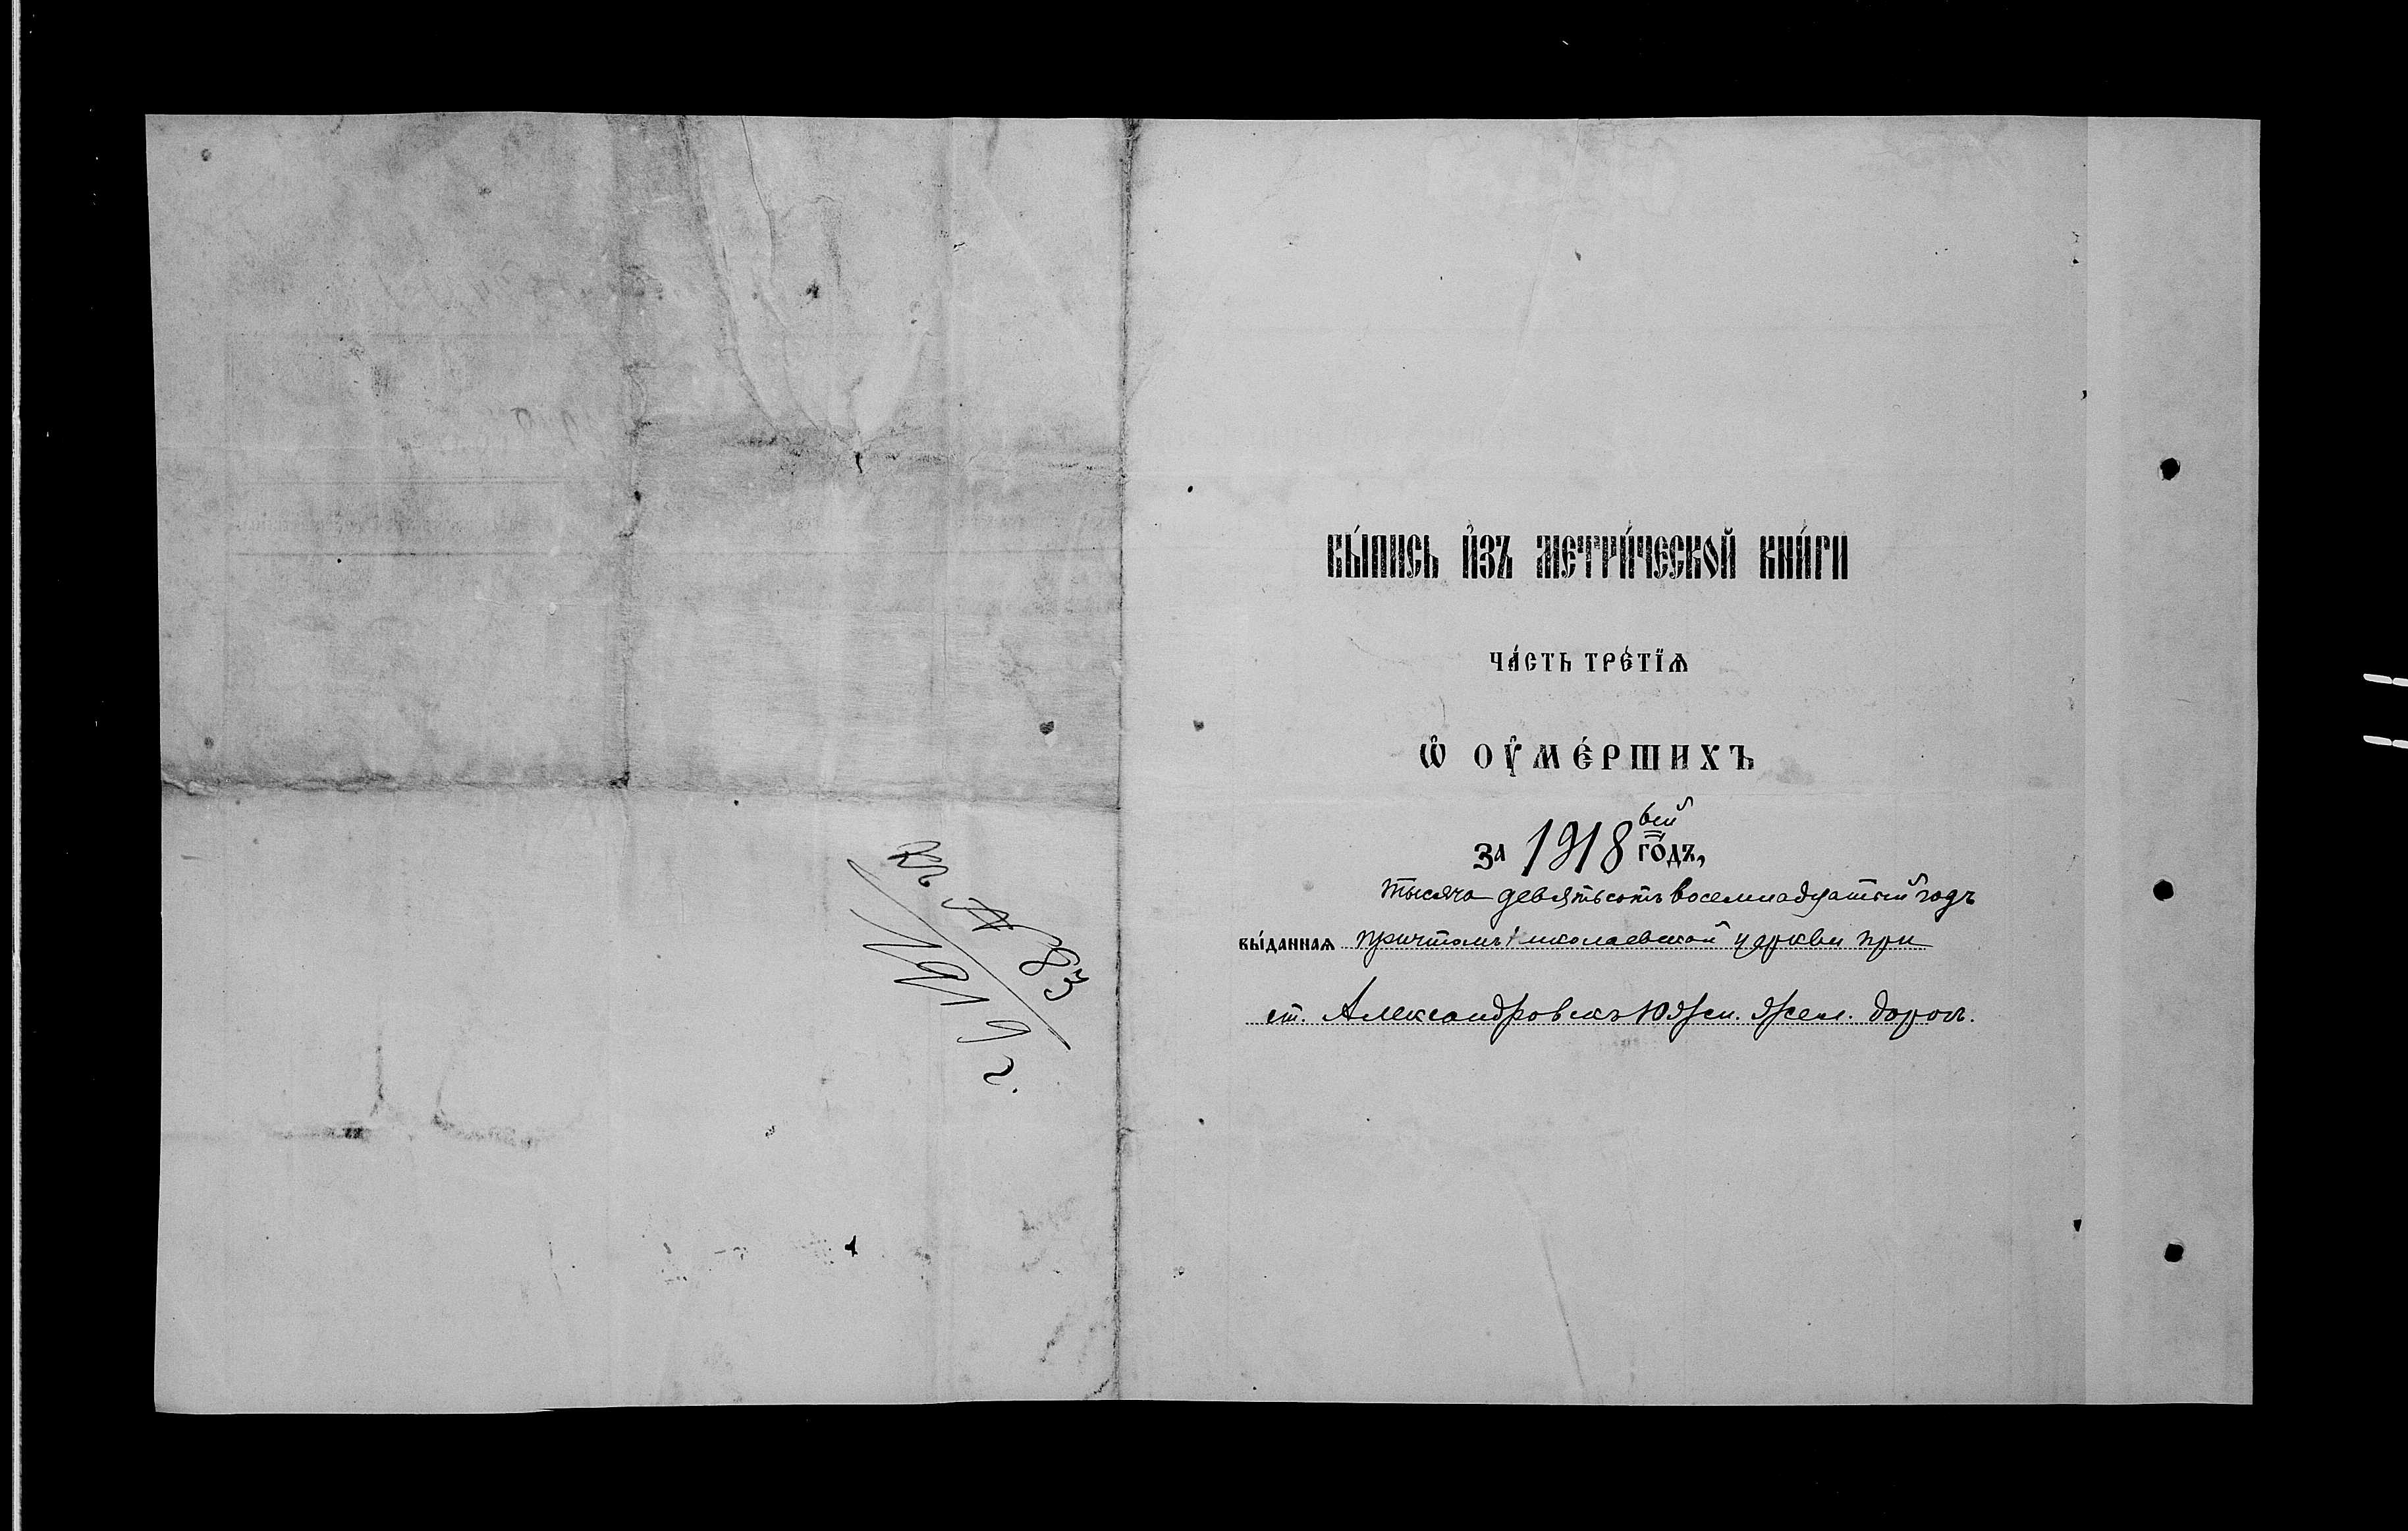 Къ № 83
1919 г.
ВЫ́ПИСЬ И҆ЗЪ МЕТРИ́ЧЕСКОЙ КНИ́ГИ
ЧА́СТЬ ТРЕ́ТЇѦ
Ѡ҆ ОУ҆МЕ́РШИХЪ
за 1918ый го́дъ,
тысяча девятьсотъ восемнадцатый годъ
вы́даннаѧ причтомъ Николаевской церкви при
ст. Александровскъ Южн. жел. дорогъ.